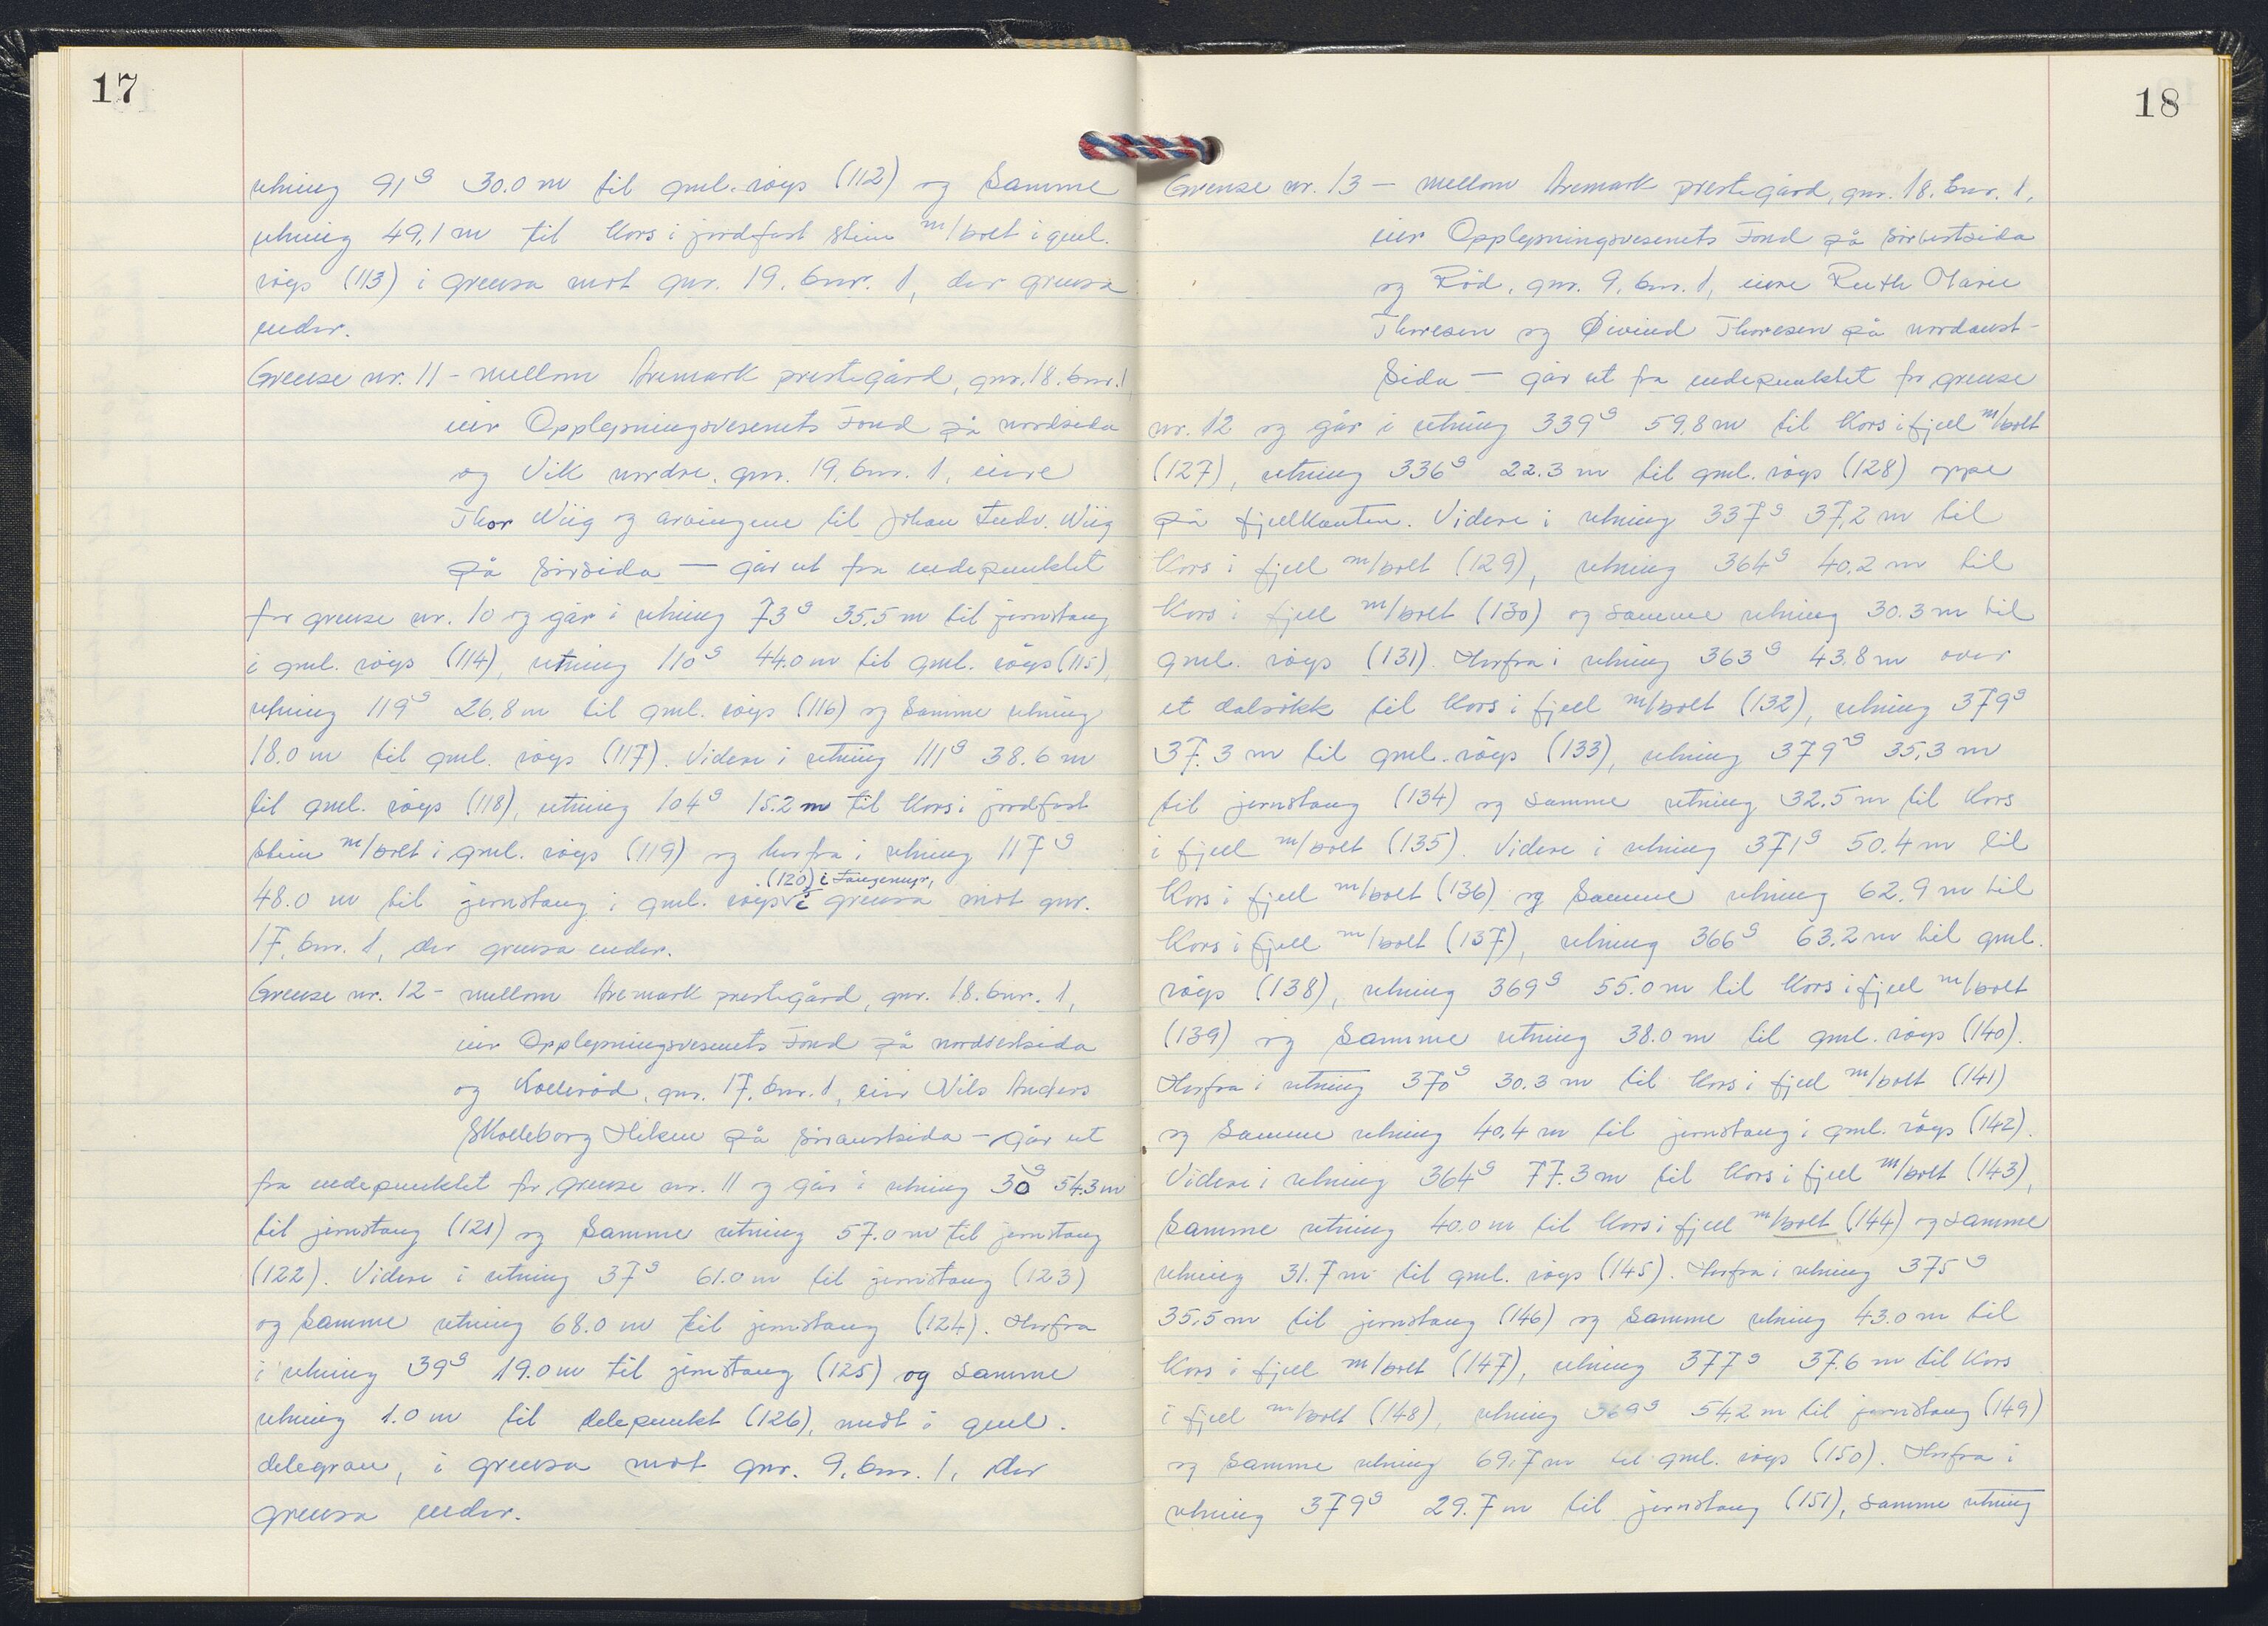 17
retning 91g 30.0 m til gml. röys (112) og samme
retning 49,1 m til kors i jordfast stein m/bolt i gml.
röys (113) i grensa mot gnr. 19. bnr. 1, der grensa
ender.
Grense nr. 11 - mellom Aremark prestegård, gnr. 18. bnr. 1
eier Opplysningsvesenets Fond på nordsida
og Vik nordre. gnr. 19. bnr. 1, eiere
Thor Wiig og arvingene til Johan Ludv. Wiig
på sörsida — går ut fra endepunktet
for grense nr. 10 og går i retning 73g 35.5 m til jernstang
i gml. röys (114), retning 110g 44.0 m til gml. röys (115),
retning 119g 26,8 m til gml. röys (116) og samme retning
18.0 m til gml. röys (117). Videre i retning 111g 38.6 m
til gml. röys (118), retning 104g 15.2 m til kors i jordfast
stein m/bolt i gml. röys (119) og herfra i retning 117g
(120) i Tangemyr,
48.0 m til jernstang i gml. röys i grensa mot gnr.
17, bnr. 1, der grensa ender.
Grense nr. 12 - mellom Aremark prestegård, gnr. 18. bnr. 1,
eier Opplysningsvesenets Fond på nordvestsida
og Kolleröd, gnr. 17. bnr. 1, eier Nils Anders
Skolleborg Hilsen på söraustsida - går ut
fra endepunktet for grense nr. 11 og går i retning 30g 54.3 m
til jernstang (121) og samme retning 57.0 m til jernstang
(122). Videre i retning 37g 61.0 m til jernstang (123)
og samme retning 68.0 m til jernstang (124). Herfra
i retning 39g 19.0 m til jernstang (125) og samme
retning 1.0 m til delepunkt (126), midt i gml.
delegran, i grensa mot gnr. 9. bnr. 1, der
grensa ender.
18
Grense nr. 13 - mellom Aremark prestegård, gnr. 18. bnr. 1,
eier Opplysningsvesenets Fond på sörvestsida
og Röd, gnr. 9. bnr. 1, eiere Ruth Marie
Thoresen og Øivind Thoresen på nordaust-
sida — går ut fra endepunktet for grense
nr. 12 og går i retning 339g 59,8 m til kors i fjell m/bolt
(127), retning 336g 22.3 m til gml. röys (128) oppe
på fjellkanten. Videre i retning 337g 37,2 m til
kors i fjell m/bolt (129), retning 364g 40.2 m til
kors i fjell m/bolt (130) og samme retning 30.3 m til
gml. röys (131). Herfra i retning 363g 43.8 m over
et dalsökk til kors i fjell m/bolt (132), retning 379g
37.3 m til gml. röys (133), retning 379g 35,3 m
til jernstang (134) og samme retning 32.5 m til kors
i fjell m/bolt (135). Videre i retning 371g 50.4 m til
kors i fjell m/bolt (136) og samme retning 62.9 m til
kors i fjell m/bolt (137), retning 366g 63.2 m til gml.
röys (138), retning 369g 55.0 m til kors i fjell m/bolt
(139) og samme retning 38.0 m til gml. röys (140).
Herfra i retning 370g 30.3 m til kors i fjell m/bolt (141)
og samme retning 40.4 m til jernstang i gml. röys (142).
Videre i retning 364g 77.3 m til kors i fjell m/bolt (143),
samme retning 40.0 m til kors i fjell m/bolt (144) og samme
retning 31.7 m til gml. röys (145). Herfra i retning 375g
35.5 m til jernstang (146) og samme retning 43.0 m til
kors i fjell m/bolt (147), retning 377g 37.6 m til kors
i fjell m/bolt (148), retning 369g 54,2 m til jernstang (149)
og samme retning 69,7 m til gml. röys (150). Herfra i
retning 379g 29.7 m til jernstang (151), samme retning